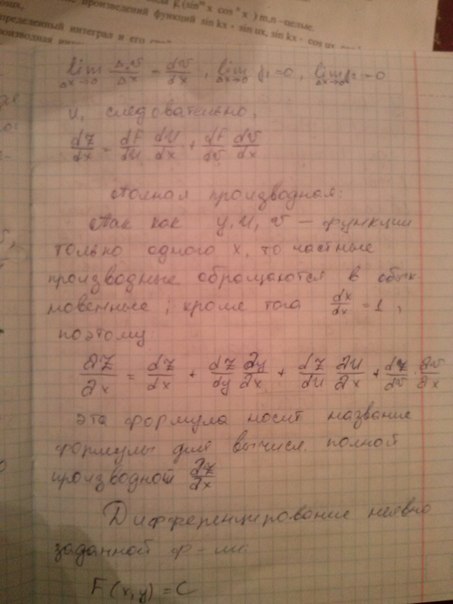 произведений функций sin kx · sin nx, sin kx · cos nx
lim Δv/Δx = dv/dx, lim γ₁=0, lim γ₂=0
Δx→0 Δx→0 Δx→0
и, следовательно,
dz/dx = df/du du/dx + df/dv dv/dx
Полная производная:
Так как y, u, v – функции
только одного x, то частные
производные обращаются в обык
новенные; кроме того dx/dx = 1,
поэтому
∂z/∂x = dz/dx + dz/dy ∂y/∂x + dz/du ∂u/∂x + dz/dv · ∂v/∂x
эта формула носит название
формулы для вычисл. полной
производной ∂z/∂x
Дифференцирование неявно
заданной ф-ии
F(x,y)=C